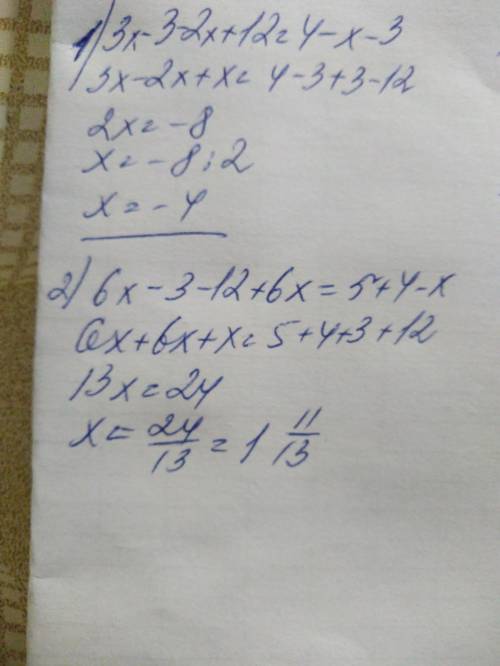 1) 3x-3-2x+12=4-x-3
3x-2x+x=4-3+3-12
2x=-8
x=-8:2
x=-4
2) 6x-3-12+6x=5+4-x
6x+6x+x=5+4+3+12
13x=24
x=24/13=1 11/13